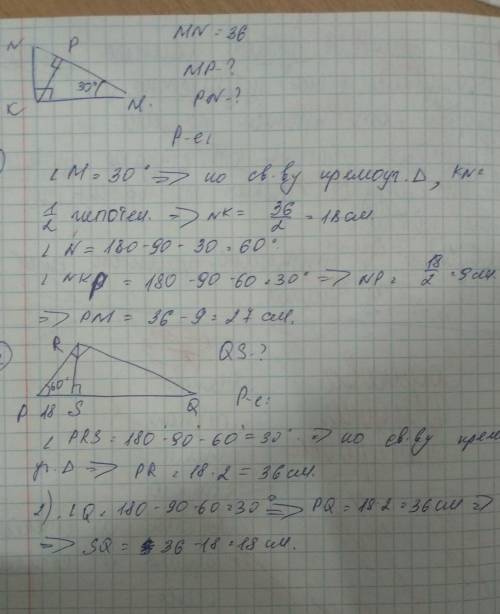 MN = 36
MP - ?
PN - ?
N P 30° K M.
P-е:
∠M = 30° => по св-ву прямоуг. Δ, KN =
1/2 гипотен. => NK = 36/2 = 18 см
∠N = 180 - 90 - 30 = 60°.
∠NKP = 180 - 90 - 60 = 30° => NP = 18/2 = 9 см
=> PM = 36 - 9 = 27 см.
R QS - ?
60° P 18 S Q P-е:
∠PRS = 180° - 90° - 60° = 30° => по св-ву прям
уг. Δ => PR = 18 · 2 = 36 см.
2). ∠Q = 180 - 90 - 60 = 30° => PQ = 18·2 = 36 см =>
=> SQ = 36 - 18 = 18 см.